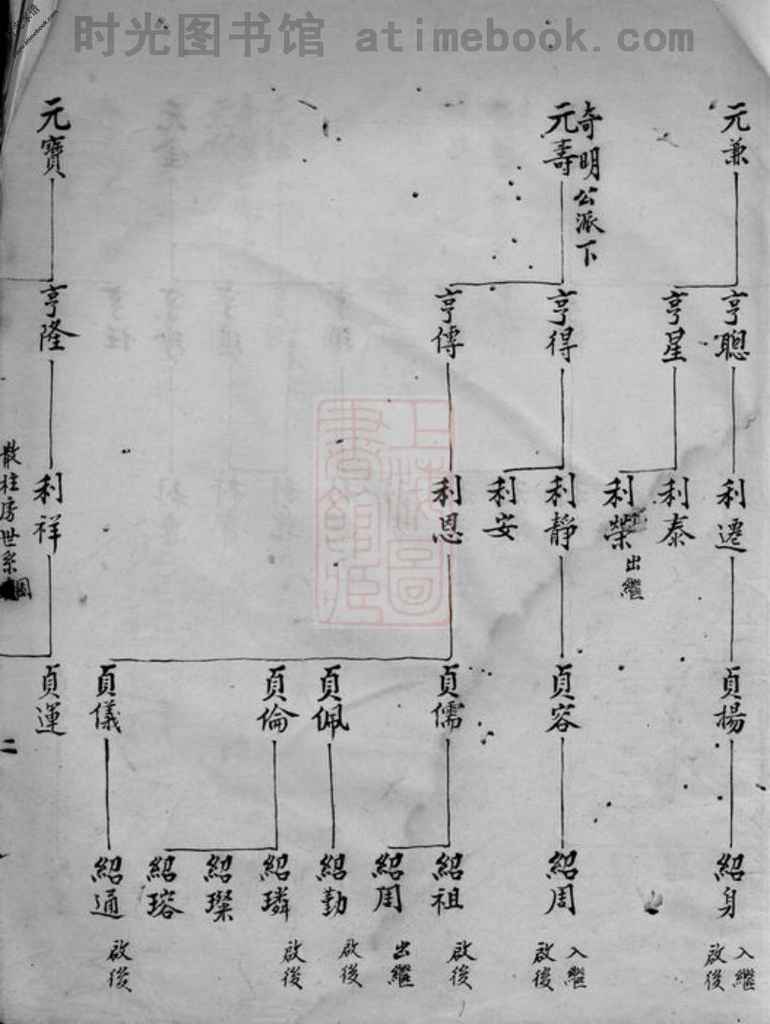 时光图书馆 atimebook.com
元兼
奇明公派下
元壽
元寶
亨聰
亨星
亨得
亨傳
亨隆
利遷
利泰
利榮
出繼
利靜
利安
利恩
利祥
散柱房世系圖
貞揚
貞容
貞儒
貞佩
貞倫
貞儀
貞運
二
紹身
入繼
啟後
紹周
入繼
啟後
紹祖
啟後
紹周
出繼
紹勤
啟後
紹璘
啟後
紹璨
紹瑢
紹通
啟後